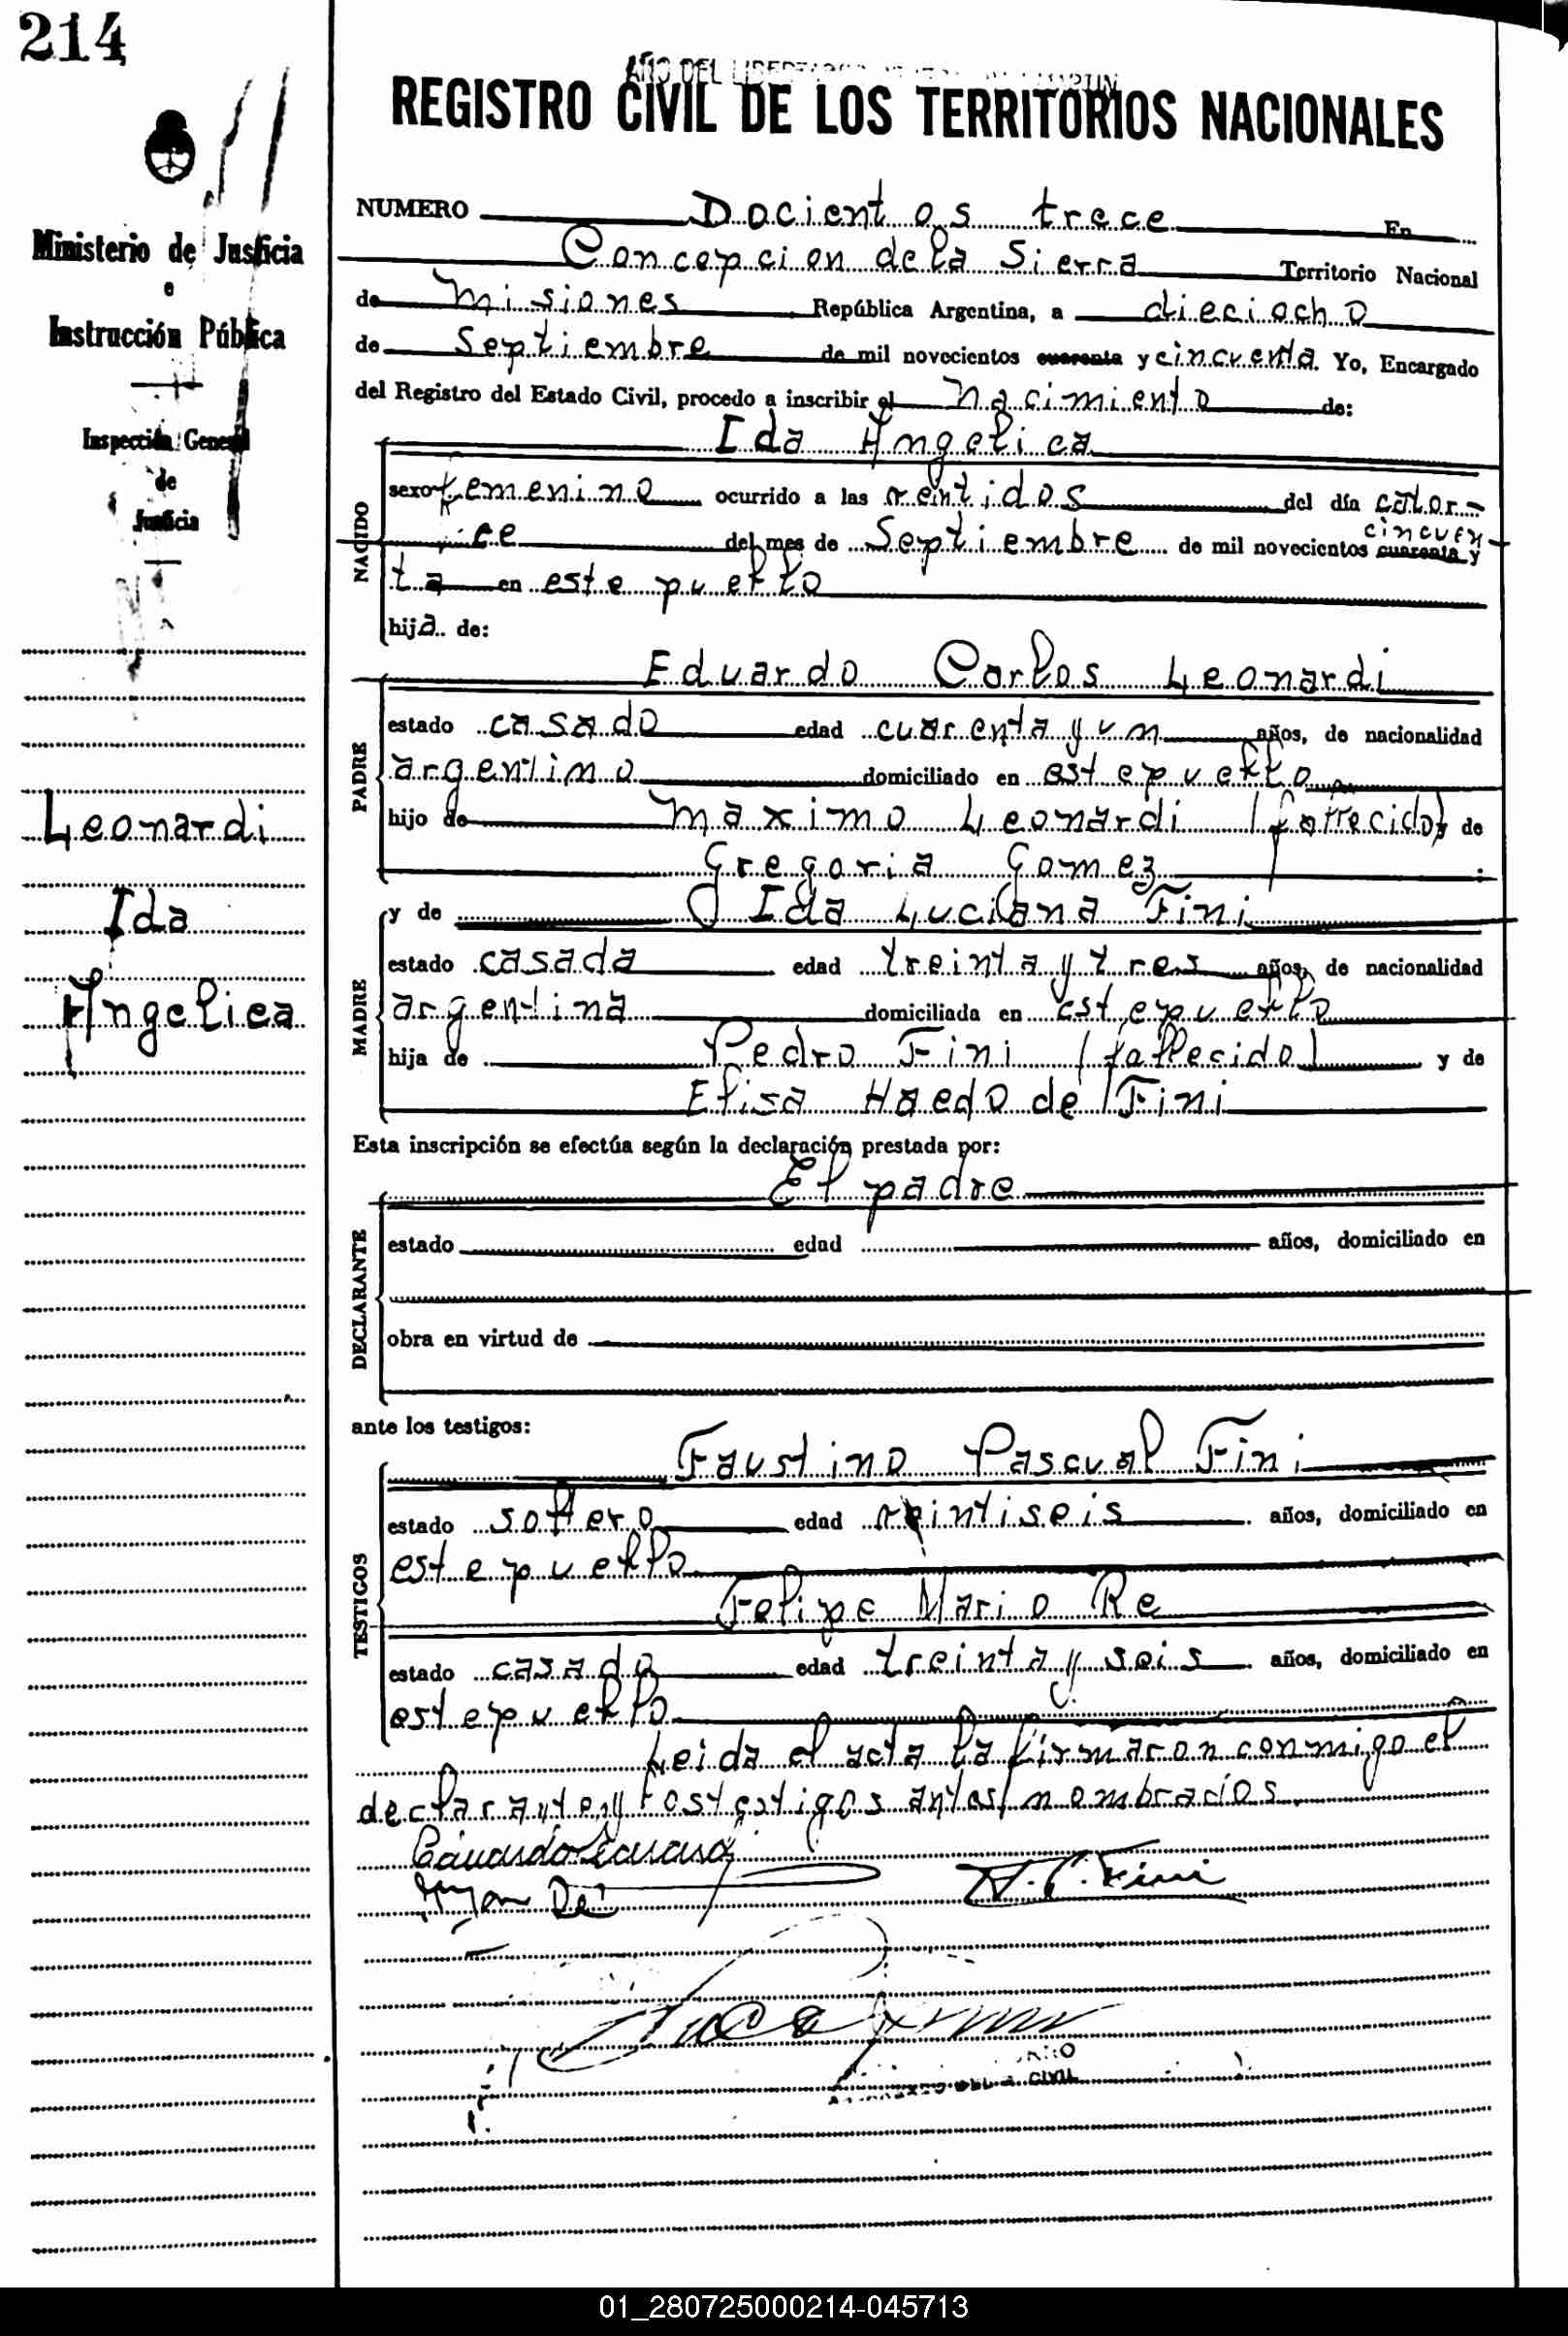 214
AÑO DEL LIBERTADOR
REGISTRO CIVIL DE LOS TERRITORIOS NACIONALES
Ministerio de Justicia
e
Instrucción Pública
Inspección General
de
Justicia
Leonardi
Ida
Angelica
NUMERO Docientos trece En
Concepcion de la Sierra Territorio Nacional
de Misiones República Argentina, a dieciocho
de Septiembre de mil novecientos cuarenta y cincuenta. Yo, Encargado
del Registro del Estado Civil, procedo a inscribir el nacimiento de:
NACIDO
Ida Angelica
sexo femenino ocurrido a las veintidos del día cator-
ce del mes de Septiembre de mil novecientos cuarenta y cincuen
ta en este pueblo
hija de:
PADRE
Eduardo Carlos Leonardi
estado casado edad cuarenta y un años, de nacionalidad
argentino domiciliado en este pueblo
hijo de Maximo Leonardi (fallecido) y de
Gregoria Gomez ;
MADRE
y de Ida Luciana Fini
estado casada edad treinta y tres años, de nacionalidad
argentina domiciliada en este pueblo
hija de Pedro Fini (fallecido) y de
Elisa Haedo de Fini
Esta inscripción se efectúa según la declaración prestada por:
DECLARANTE
El padre
estado edad años, domiciliado en
obra en virtud de
ante los testigos:
TESTIGOS
Faustino Pascual Fini
estado soltero edad veintiseis años, domiciliado en
este pueblo
Felipe Mario Re
estado casado edad treinta y seis años, domiciliado en
este pueblo
Leida el acta la firmaron conmigo el
declarante y los testigos antes nombrados.
F. P. Fini
CIVIL
01_280725000214-045713